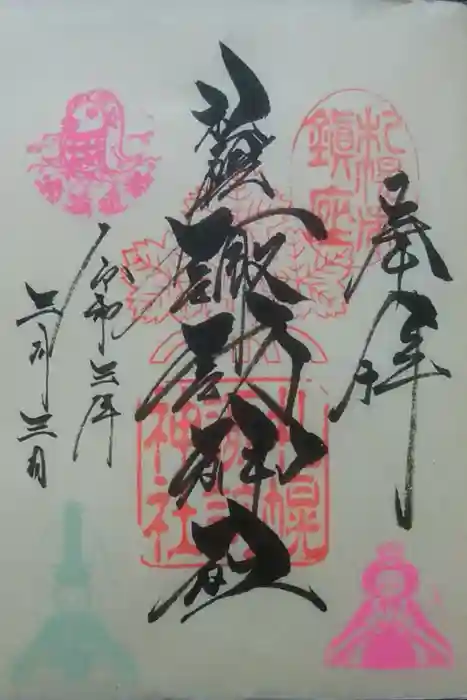 奉拝
札幌
鎮座
諏訪神社
札幌
諏訪
神社
令和三年
三月三日